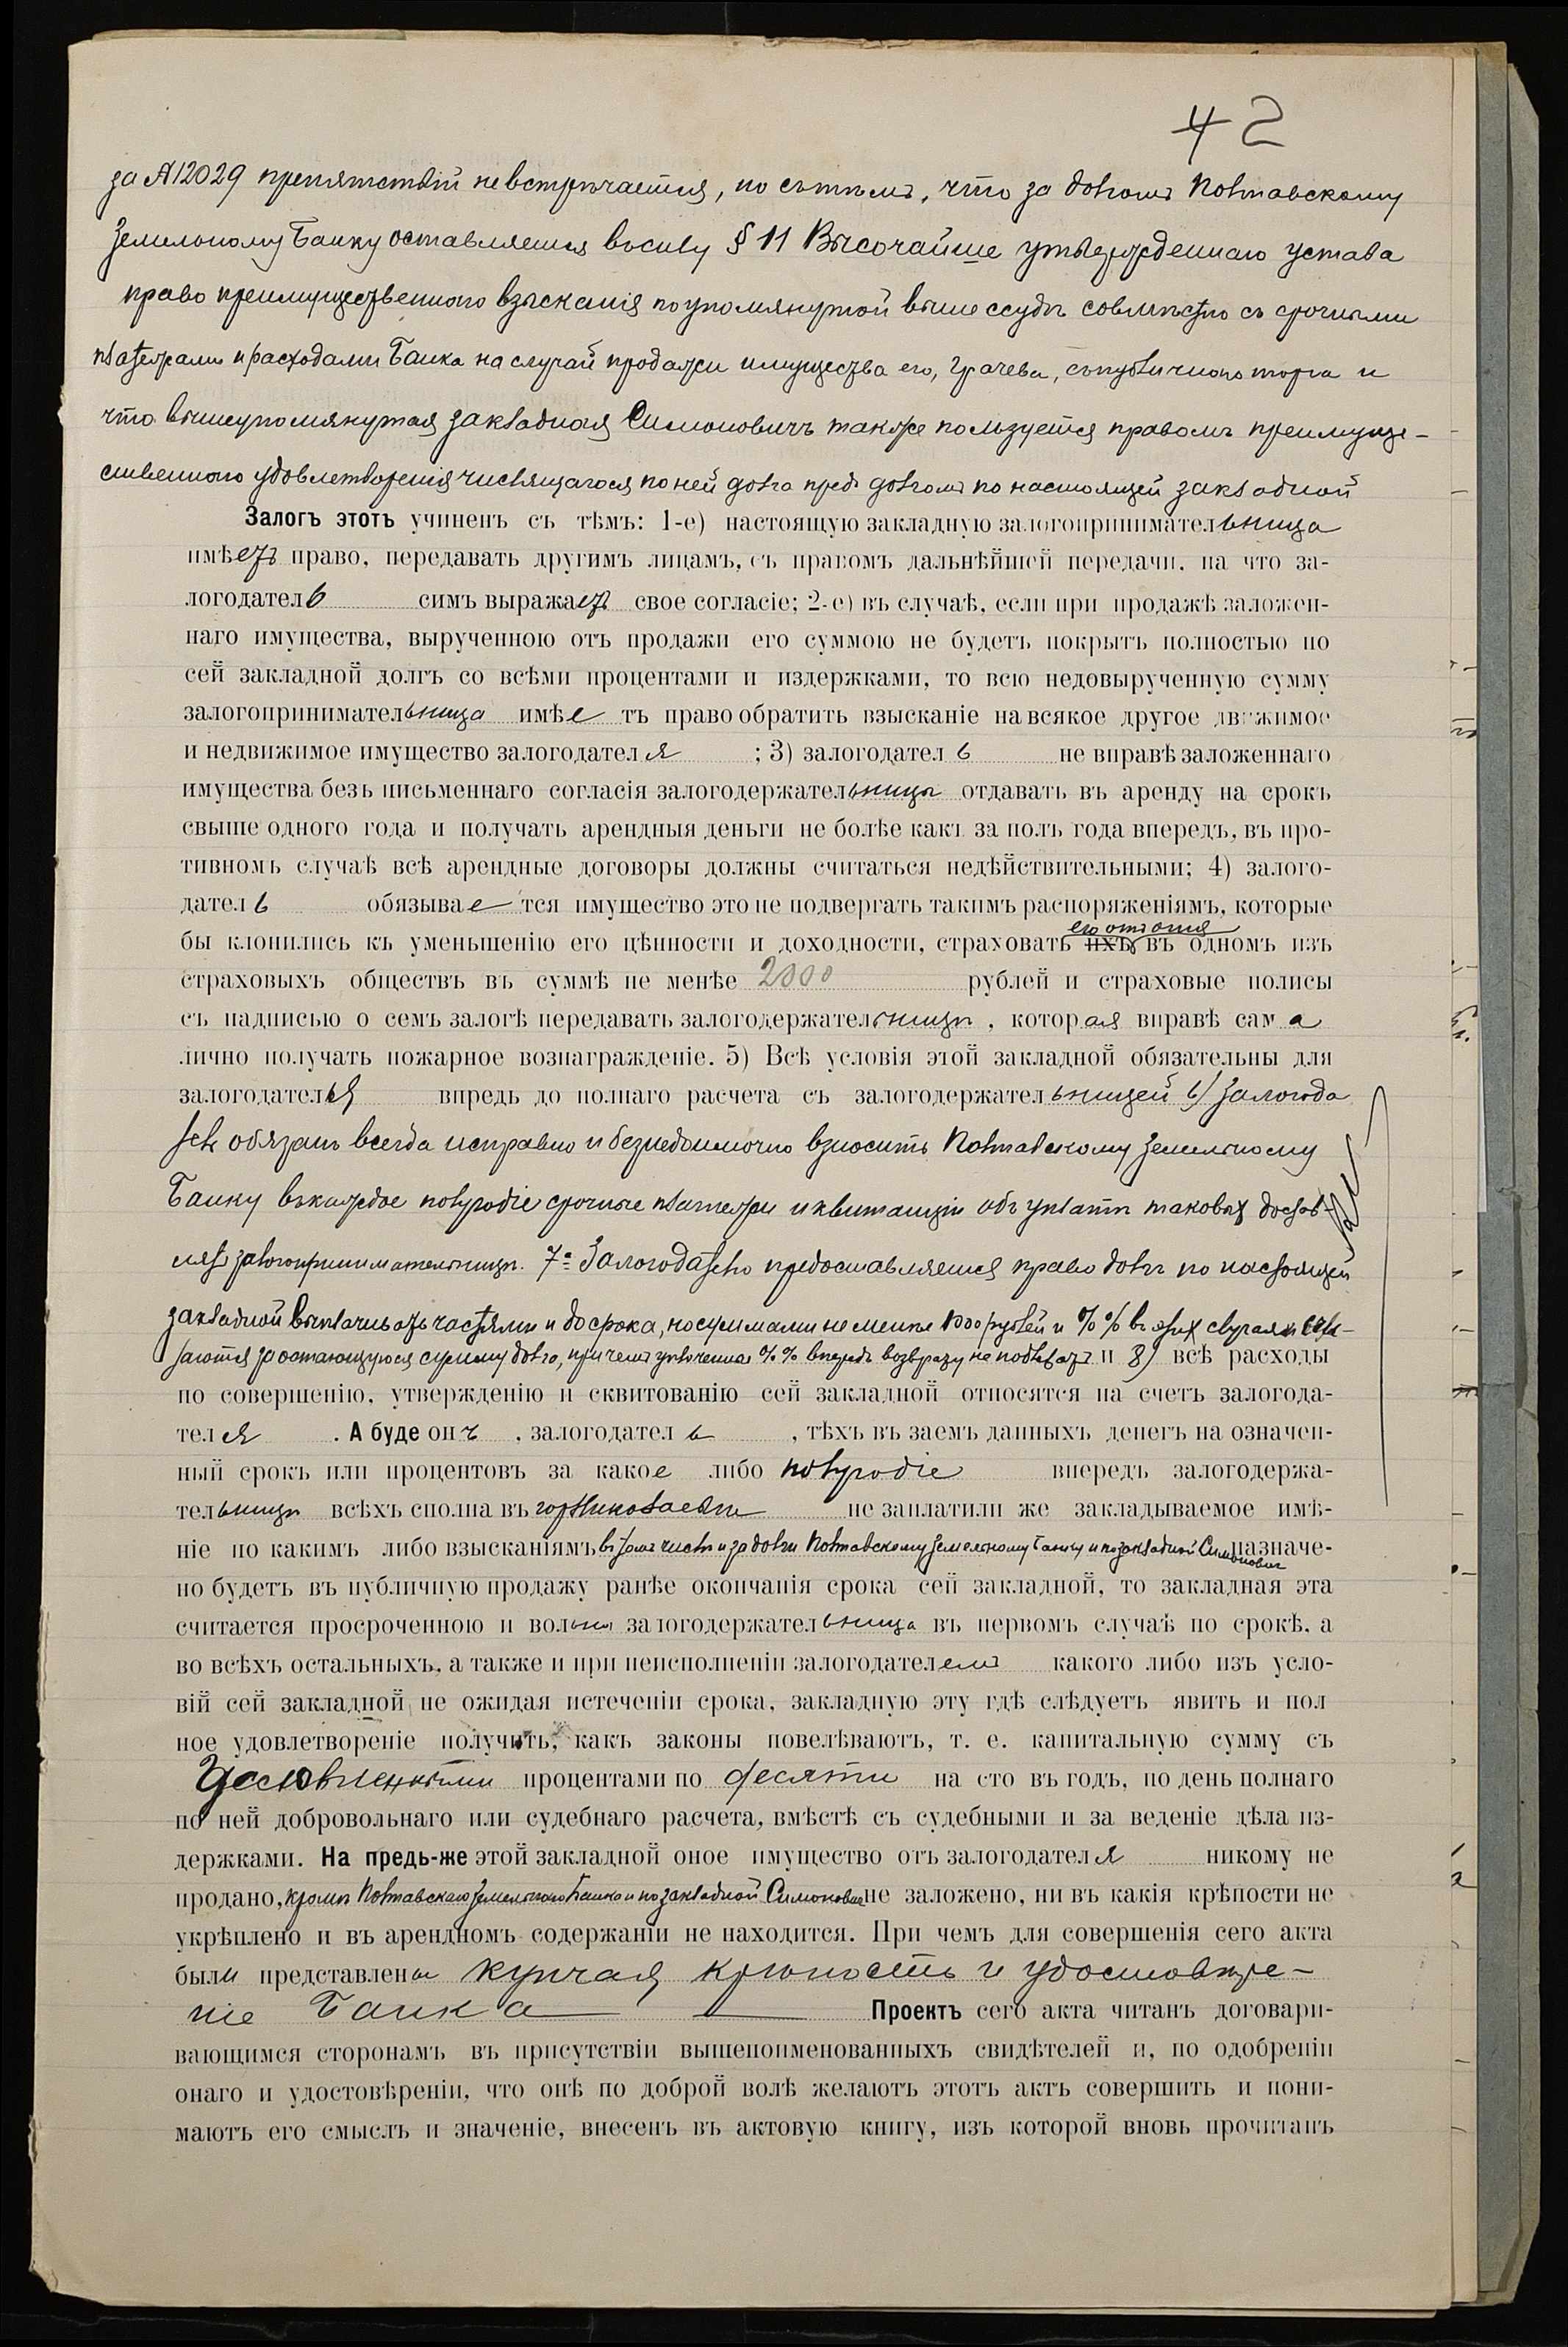 42
за №12029 препятствій не встрѣчается, но съ тѣмъ, что за долгомъ Полтавскому
Земельному Банку оставляется въ силу § 11 Высочайше утвержденнаго устава
право преимущественнаго взысканія по упомянутой выше ссудѣ совмѣстно съ срочными
платежами и расходами Банка на случай продажи имущества его, Грачева, съ публичнаго торга и
что вышеупомянутая закладная Симоновичъ также пользуется правомъ преимуще-
ственнаго удовлетворенія числящагося по ней долга предъ долгомъ по настоящей закладной
Залогъ этотъ учиненъ съ тѣмъ: 1-е) настоящую закладную залогопринимательница
имѣетъ право, передавать другимъ лицамъ, съ правомъ дальнѣйшей передачи, на что за-
логодатель симъ выражаетъ свое согласіе; 2-е) въ случаѣ, если при продажѣ заложен-
наго имущества, вырученною отъ продажи его суммою не будетъ покрытъ полностью по
сей закладной долгъ со всѣми процентами и издержками, то всю недовырученную сумму
залогопринимательница имѣетъ право обратить взысканіе на всякое другое движимое
и недвижимое имущество залогодателя ; 3) залогодатель не вправѣ заложеннаго
имущества безъ письменнаго согласія залогодержательницы отдавать въ аренду на срокъ
свыше одного года и получать арендныя деньги не болѣе какъ за полъ года впередъ, въ про-
тивномъ случаѣ всѣ арендные договоры должны считаться недѣйствительными; 4) залого-
датель обязывается имущество это не подвергать такимъ распоряженіямъ, которые
его отъ огня
бы клонились къ уменьшенію его цѣнности и доходности, страховать ихъ въ одномъ изъ
страховыхъ обществъ въ суммѣ не менѣе 2000 рублей и страховые полисы
съ надписью о семъ залогѣ передавать залогодержательницѣ, которая вправѣ сама
лично получать пожарное вознагражденіе. 5) Всѣ условія этой закладной обязательны для
залогодателя впредь до полнаго расчета съ залогодержательницей 6) Залогода
тель обязанъ всегда исправно и безнедоимочно вносить Полтавскому Земельному
Банку въ каждое полугодіе срочные платежи и квитанціи объ уплатѣ таковыхъ достав-
лять залогопринимательницѣ. 7е Залогодателю предоставляется право долгъ по настоящей
закладной выплачивать частями и до срока, но суммами не менѣе 1000 рублей и %% въ этихъ случаяхъ
за остающуюся сумму долга, при чемъ уплоченные %% впередъ возврату не подлежатъ и 8) всѣ расходы
по совершенію, утвержденію и сквитованію сей закладной относятся на счетъ залогода-
теля . А буде онъ , залогодатель , тѣхъ въ заемъ данныхъ денегъ на означен-
ный срокъ или процентовъ за какое либо полугодіе впередъ залогодержа-
тельницѣ всѣхъ сполна въ гор. Николаевѣ не заплатили же закладываемое имѣ-
ніе по какимъ либо взысканіямъ въ томъ числѣ и за долги Полтавскому Земельному Банку и по закладной Симоновичъ назначе-
но будетъ въ публичную продажу ранѣе окончанія срока сей закладной, то закладная эта
считается просроченною и вольна залогодержательница въ первомъ случаѣ по срокѣ, а
во всѣхъ остальныхъ, а также и при неисполненіи залогодателемъ какого либо изъ усло-
вій сей закладной не ожидая истеченіи срока, закладную эту гдѣ слѣдуетъ явить и пол
ное удовлетвореніе получить, какъ законы повелѣваютъ, т. е. капитальную сумму съ
Условленными процентами по десяти на сто въ годъ, по день полнаго
по ней добровольнаго или судебнаго расчета, вмѣстѣ съ судебными и за веденіе дѣла из-
держками. На предь-же этой закладной оное имущество отъ залогодателя никому не
продано, кромѣ Полтавскаго Земельнаго Банка и по закладной Симоновичъ не заложено, ни въ какія крѣпости не
укрѣплено и въ арендномъ содержаніи не находится. При чемъ для совершенія сего акта
были представлены купчая крѣпость и удостовѣре-
ніе Банка Проектъ сего акта читанъ договари-
вающимся сторонамъ въ присутствіи вышепоименованныхъ свидѣтелей и, по одобреніи
онаго и удостовѣреніи, что онѣ по доброй волѣ желаютъ этотъ актъ совершить и пони-
маютъ его смыслъ и значеніе, внесенъ въ актовую книгу, изъ которой вновь прочитанъ